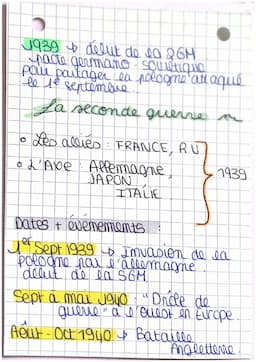 1939 ↳ début de la 2GM
pacte germano-soviétique
pour partager la pologne attaqué
le 1er septembre.
La seconde guerre m
• Les alliés : FRANCE, R.U
• L'Axe : Allemagne,
JAPON
ITALIE
1939
Dates + événements :
1er Sept 1939 ↳ Invasion de la
pologne par l'allemagne
début de la SGM
Sept à mai 1940 : "Drôle de
guerre" à l'ouest en Europe.
Août-Oct 1940 ↳ Bataille
Angleterre